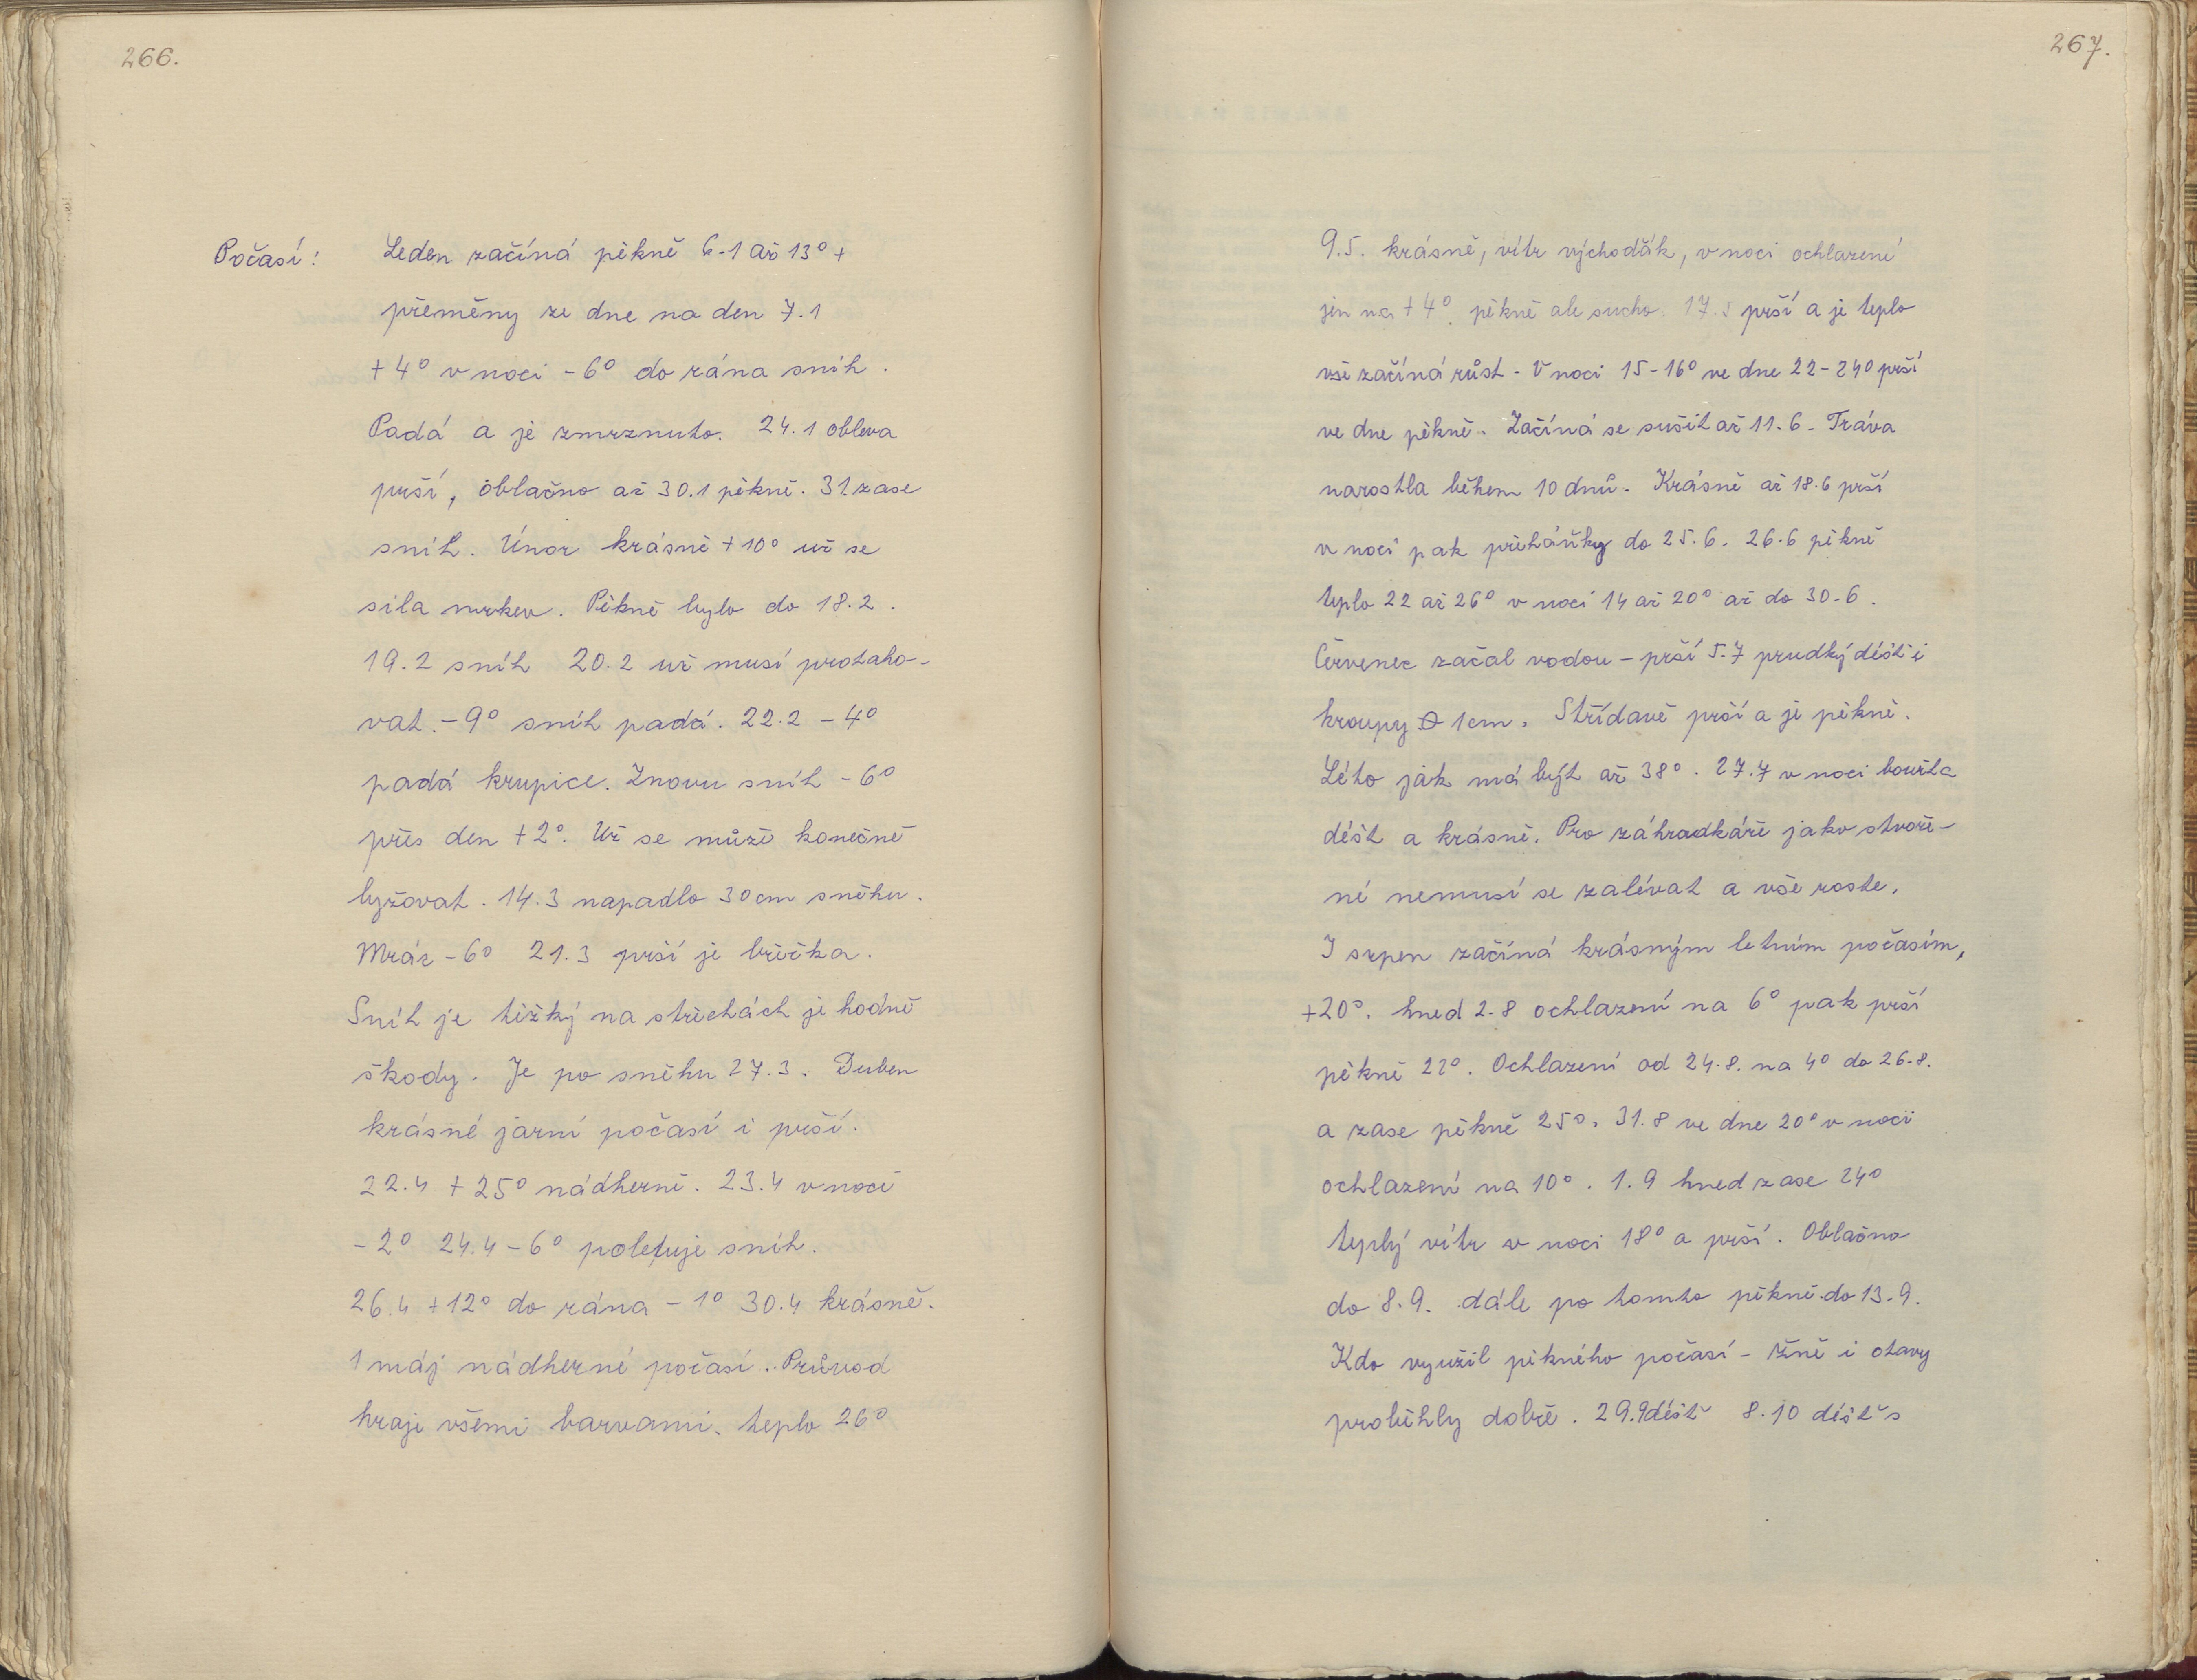 266.
Počasí: Leden začíná pěkně 6-1 až 13° +
přeměny ze dne na den 7.1
+4° v noci -6° do rána sníh.
Padá a je zmrznuto. 24.1 obleva
prší, oblačno až 30.1 pěkně. 31. zase
sníh. Únor krásně +10° už se
sila mrkev. Pěkně bylo do 18.2.
19.2 sníh 20.2 už musí protaho-
vat. -9° sníh padá. 22.2 -4°
padá krupice. Znovu sníh -6°
přes den +2°. Už se může konečně
lyžovat. 14.3 napadlo 30 cm sněhu.
Mráz -6° 21.3 prší je břečka.
Sníh je těžký na střechách je hodně
škody. Je po sněhu 27.3. Duben
krásné jarní počasí i prší.
22.4 +25° nádherně. 23.4 v noci
-2° 24.4 -6° poletuje sníh.
26.4 +12° do rána -1° 30.4 krásně.
1 máj nádherné počasí.. Průvod
hraje všemi barvami. teplo 26°
267.
9.5. krásně, vítr východňák, v noci ochlazení
jen na +4° pěkně ale sucho. 17.5 prší a je teplo
vše začíná růst - V noci 15-16° ve dne 22-24° prší
ve dne pěkně. Začíná se sušit až 11.6 - Tráva
narostla během 10 dnů. Krásně až 18.6 prší
v noci pak přeháňky do 25.6. 26.6 pěkně
teplo 22 až 26° v noci 14 až 20° až do 30-6.
Červenec začal vodou - prší 5.7 prudký déšť i
kroupy Ø 1cm. Střídavě prší a je pěkně.
Léto jak má být až 38°. 27.7 v noci bouřka
déšt a krásně. Pro záhradkáře jako stvoře-
né nemusí se zalévat a vše roste.
I srpen začíná krásným letním počasím,
+20°. hned 2.8 ochlazení na 6° pak prší
pěkně 22°. Ochlazení od 24.8. na 4° do 26.8.
a zase pěkně 25°. 31.8 ve dne 20° v noci
ochlazení na 10°. 1.9 hned zase 24°
teplý vítr v noci 18° a prší. Oblačno
do 8.9. dále po tomto pěkně.do 13.9.
Kdo využil pěkného počasí - žně i otavy
proběhly dobře. 29.9 déšť 8.10 déšť s